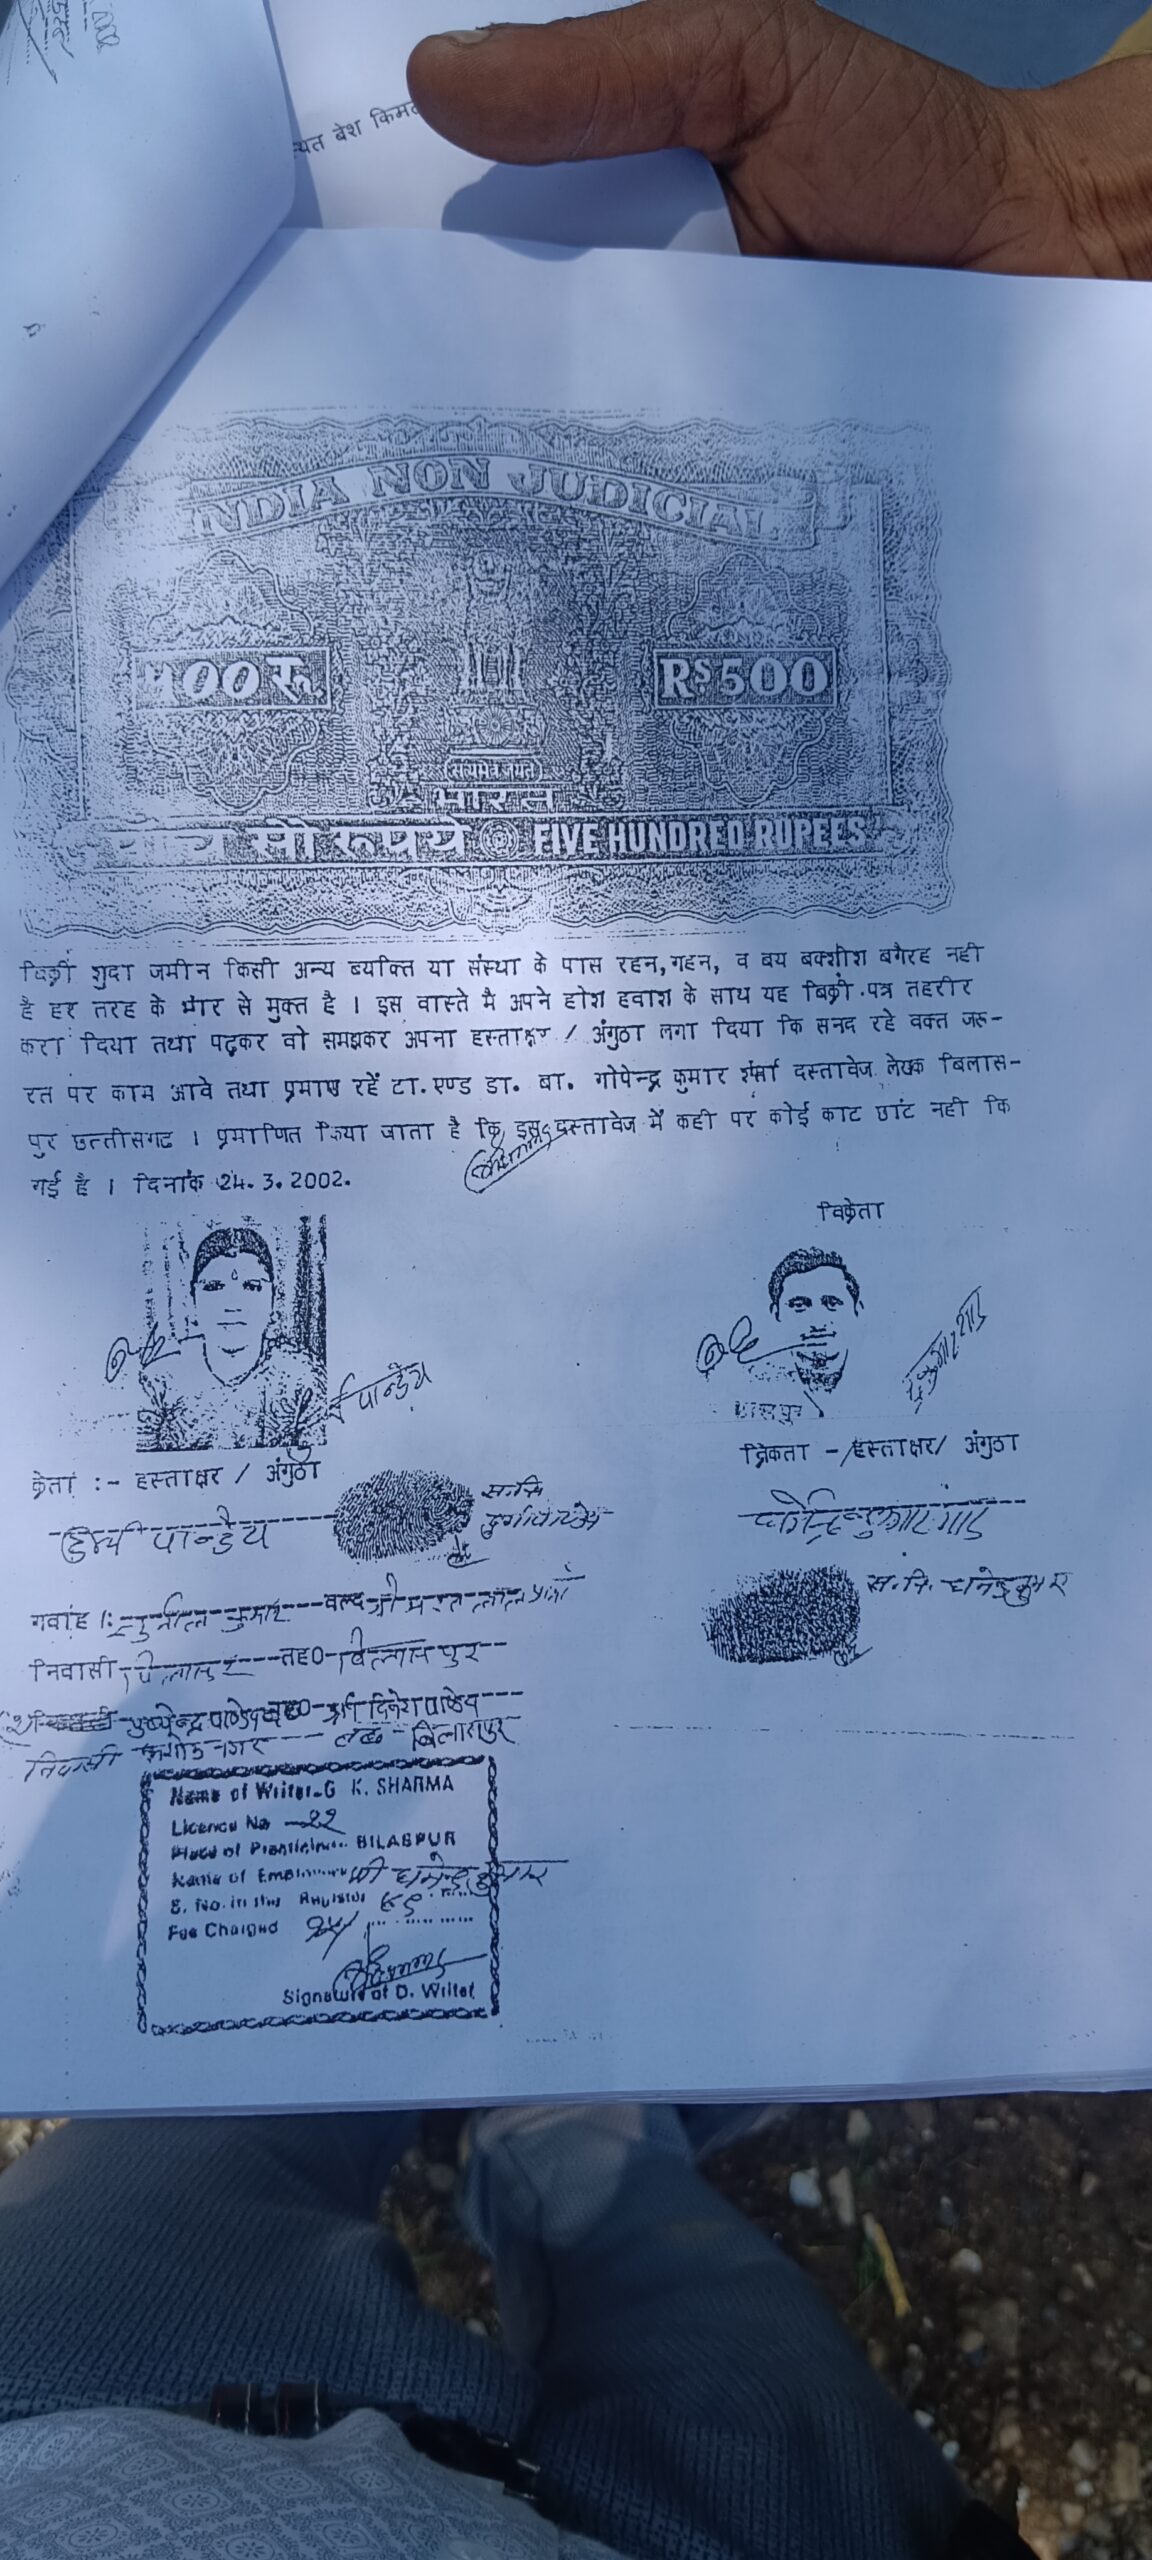 बेश किमत
INDIA NON JUDICIAL
५00 रू.
RS 500
सत्यमेव जयते
भारत
पांच सौ रूपये FIVE HUNDRED RUPEES
बिक्री शुदा जमीन किसी अन्य ब्यक्ति या संस्था के पास रहन,गहन, व बय बक्शीश बगैरह नही
है हर तरह के भार से मुक्त है । इस वास्ते मै अपने होश हवाश के साथ यह बिक्री.पत्र तहरीर
करा दिया तथा पढ़कर वो समझकर अपना हस्ताक्षर / अंगुठा लगा दिया कि सनद रहे वक्त जरू-
रत पर काम आवे तथा प्रमाण रहें टा.एण्ड डा. बा. गोपेन्द्र कुमार शर्मा दस्तावेज लेखक बिलास-
पुर छत्तीसगढ । प्रमाणित किया जाता है कि इस दस्तावेज में कही पर कोई काट छांट नही कि
गई है । दिनांक 24.3.2002.
विक्रेता
पान्डेय
क्रेता :- हस्ताक्षर / अंगुठा
विकता -/हस्ताक्षर/ अंगुठा
पान्डेय
स.नि.
स.नि. धनेन्द्र कुमार
गवाह 1:- सुनील कुमार वल्द श्री
निवासी बिलासपुर तह0 बिलासपुर
पुष्पेन्द्र पाण्डेय वल्द श्री दिनेश पाण्डेय
निवासी नगर तह - बिलासपुर
Name of Writer-G K. SHARMA
Licence No 22
Place of Practicing BILASPUR
Name of श्री धनेन्द्र कुमार
S. No. in the Register
Fee Charged
Signature of D. Writer